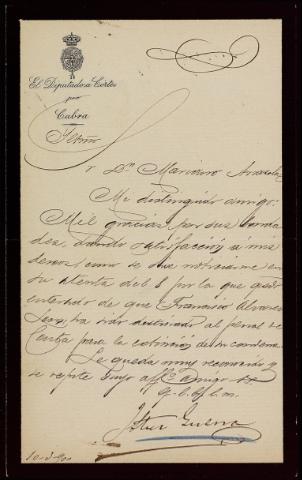 El Diputado a Cortes
por
Cabra
Sr. Dn. Mariano
Mi distinguido amigo:
Mil gracias por sus bonda
des, dando satisfacción a mis
deseos, como se sirve noticiarme en
su atenta del 8 por la que quedo
enterado de que Francisco Alvarez
ha sido destinado al penal de
Ceuta para la extinción de su condena.
Le queda muy reconocido y
se repite suyo aff.º amigo
q. b. s. m.
Guerra